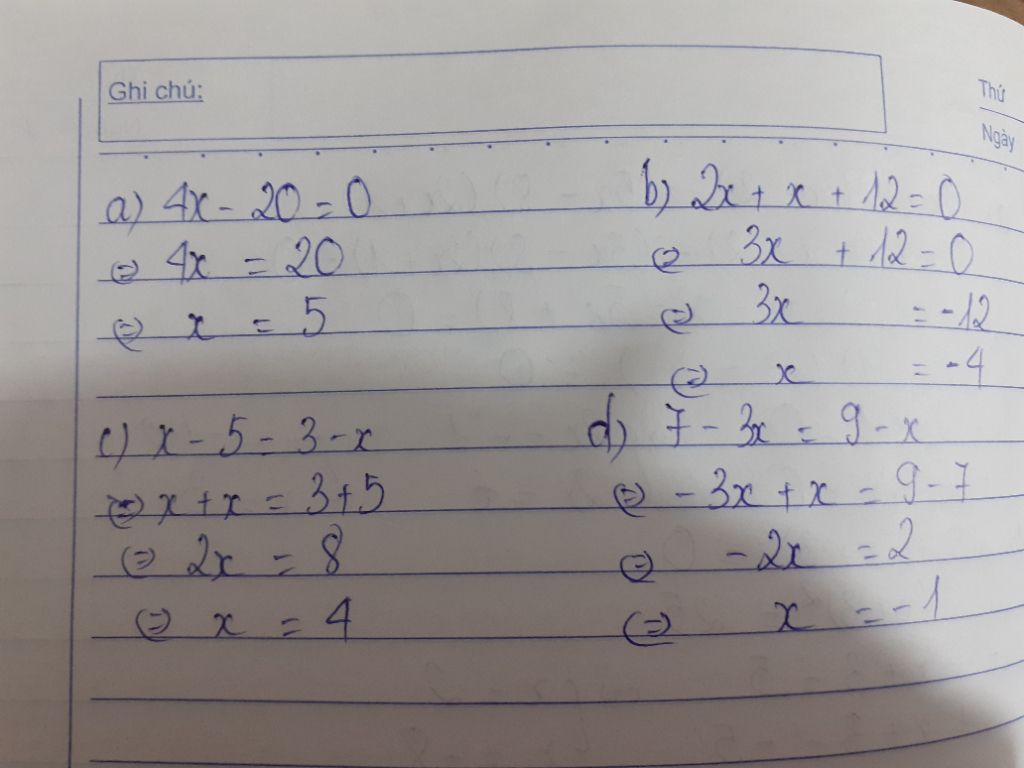 Ghi chú:
Thứ
Ngày
a) 4x - 20 = 0
⇔ 4x = 20
⇔ x = 5
b) 2x + x + 12 = 0
⇔ 3x + 12 = 0
⇔ 3x = -12
⇔ x = -4
c) x - 5 = 3 - x
⇔ x + x = 3 + 5
⇔ 2x = 8
⇔ x = 4
d) 7 - 3x = 9 - x
⇔ -3x + x = 9 - 7
⇔ -2x = 2
⇔ x = -1